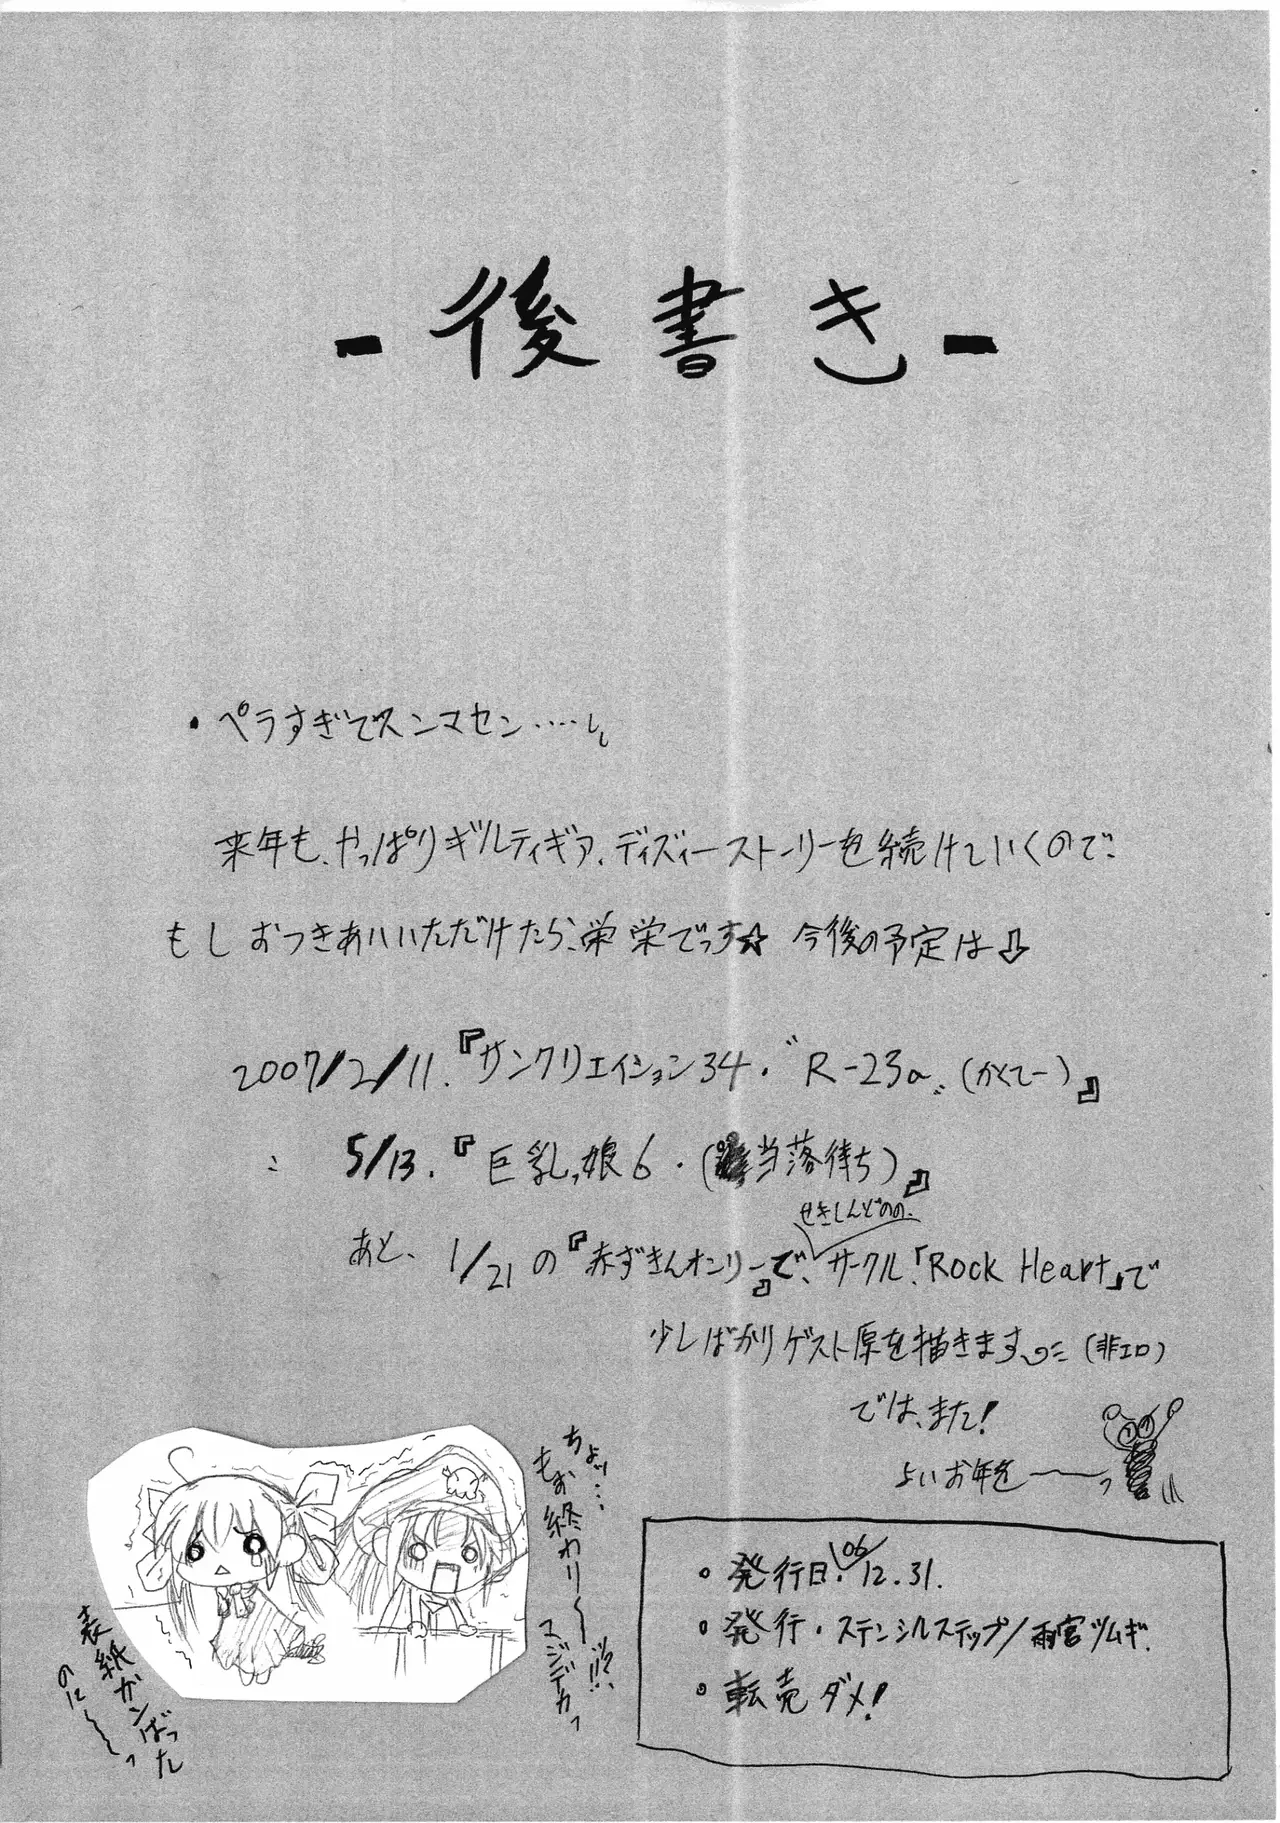 - 後書き -
・ペラすぎてスンマセン‥‥
来年も、やっぱりギルティギア、ディズィーストーリーを続けていくので、
もしおつきあいいただけたら、栄栄でっす☆ 今後の予定は⇩
2007/2/11.『サンクリエイション34・〝R-23a〟(かくてー)』
〃 5/13.『巨乳っ娘6・(当落待ち)』
せきしんどのの、
あと、1/21の『赤ずきんオンリー』で、サークル「Rock Heart」で
少しばかりゲスト原を描きます (非エロ)
では、また!
よいお年を――っ
ちょッ…
もお終わり〜〜!!
マジデカっ
表紙ガンばった
のに〜〜っ
・発行日・'06/12.31.
・発行・ステンシルステップ/雨宮ツムギ.
・転売ダメ!